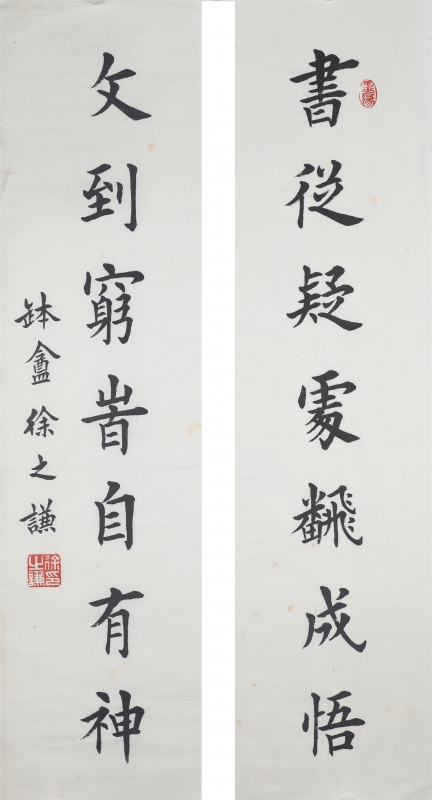 書従疑處飜成悟
文到窮旹自有神
缽盦徐之謙
徐印之謙